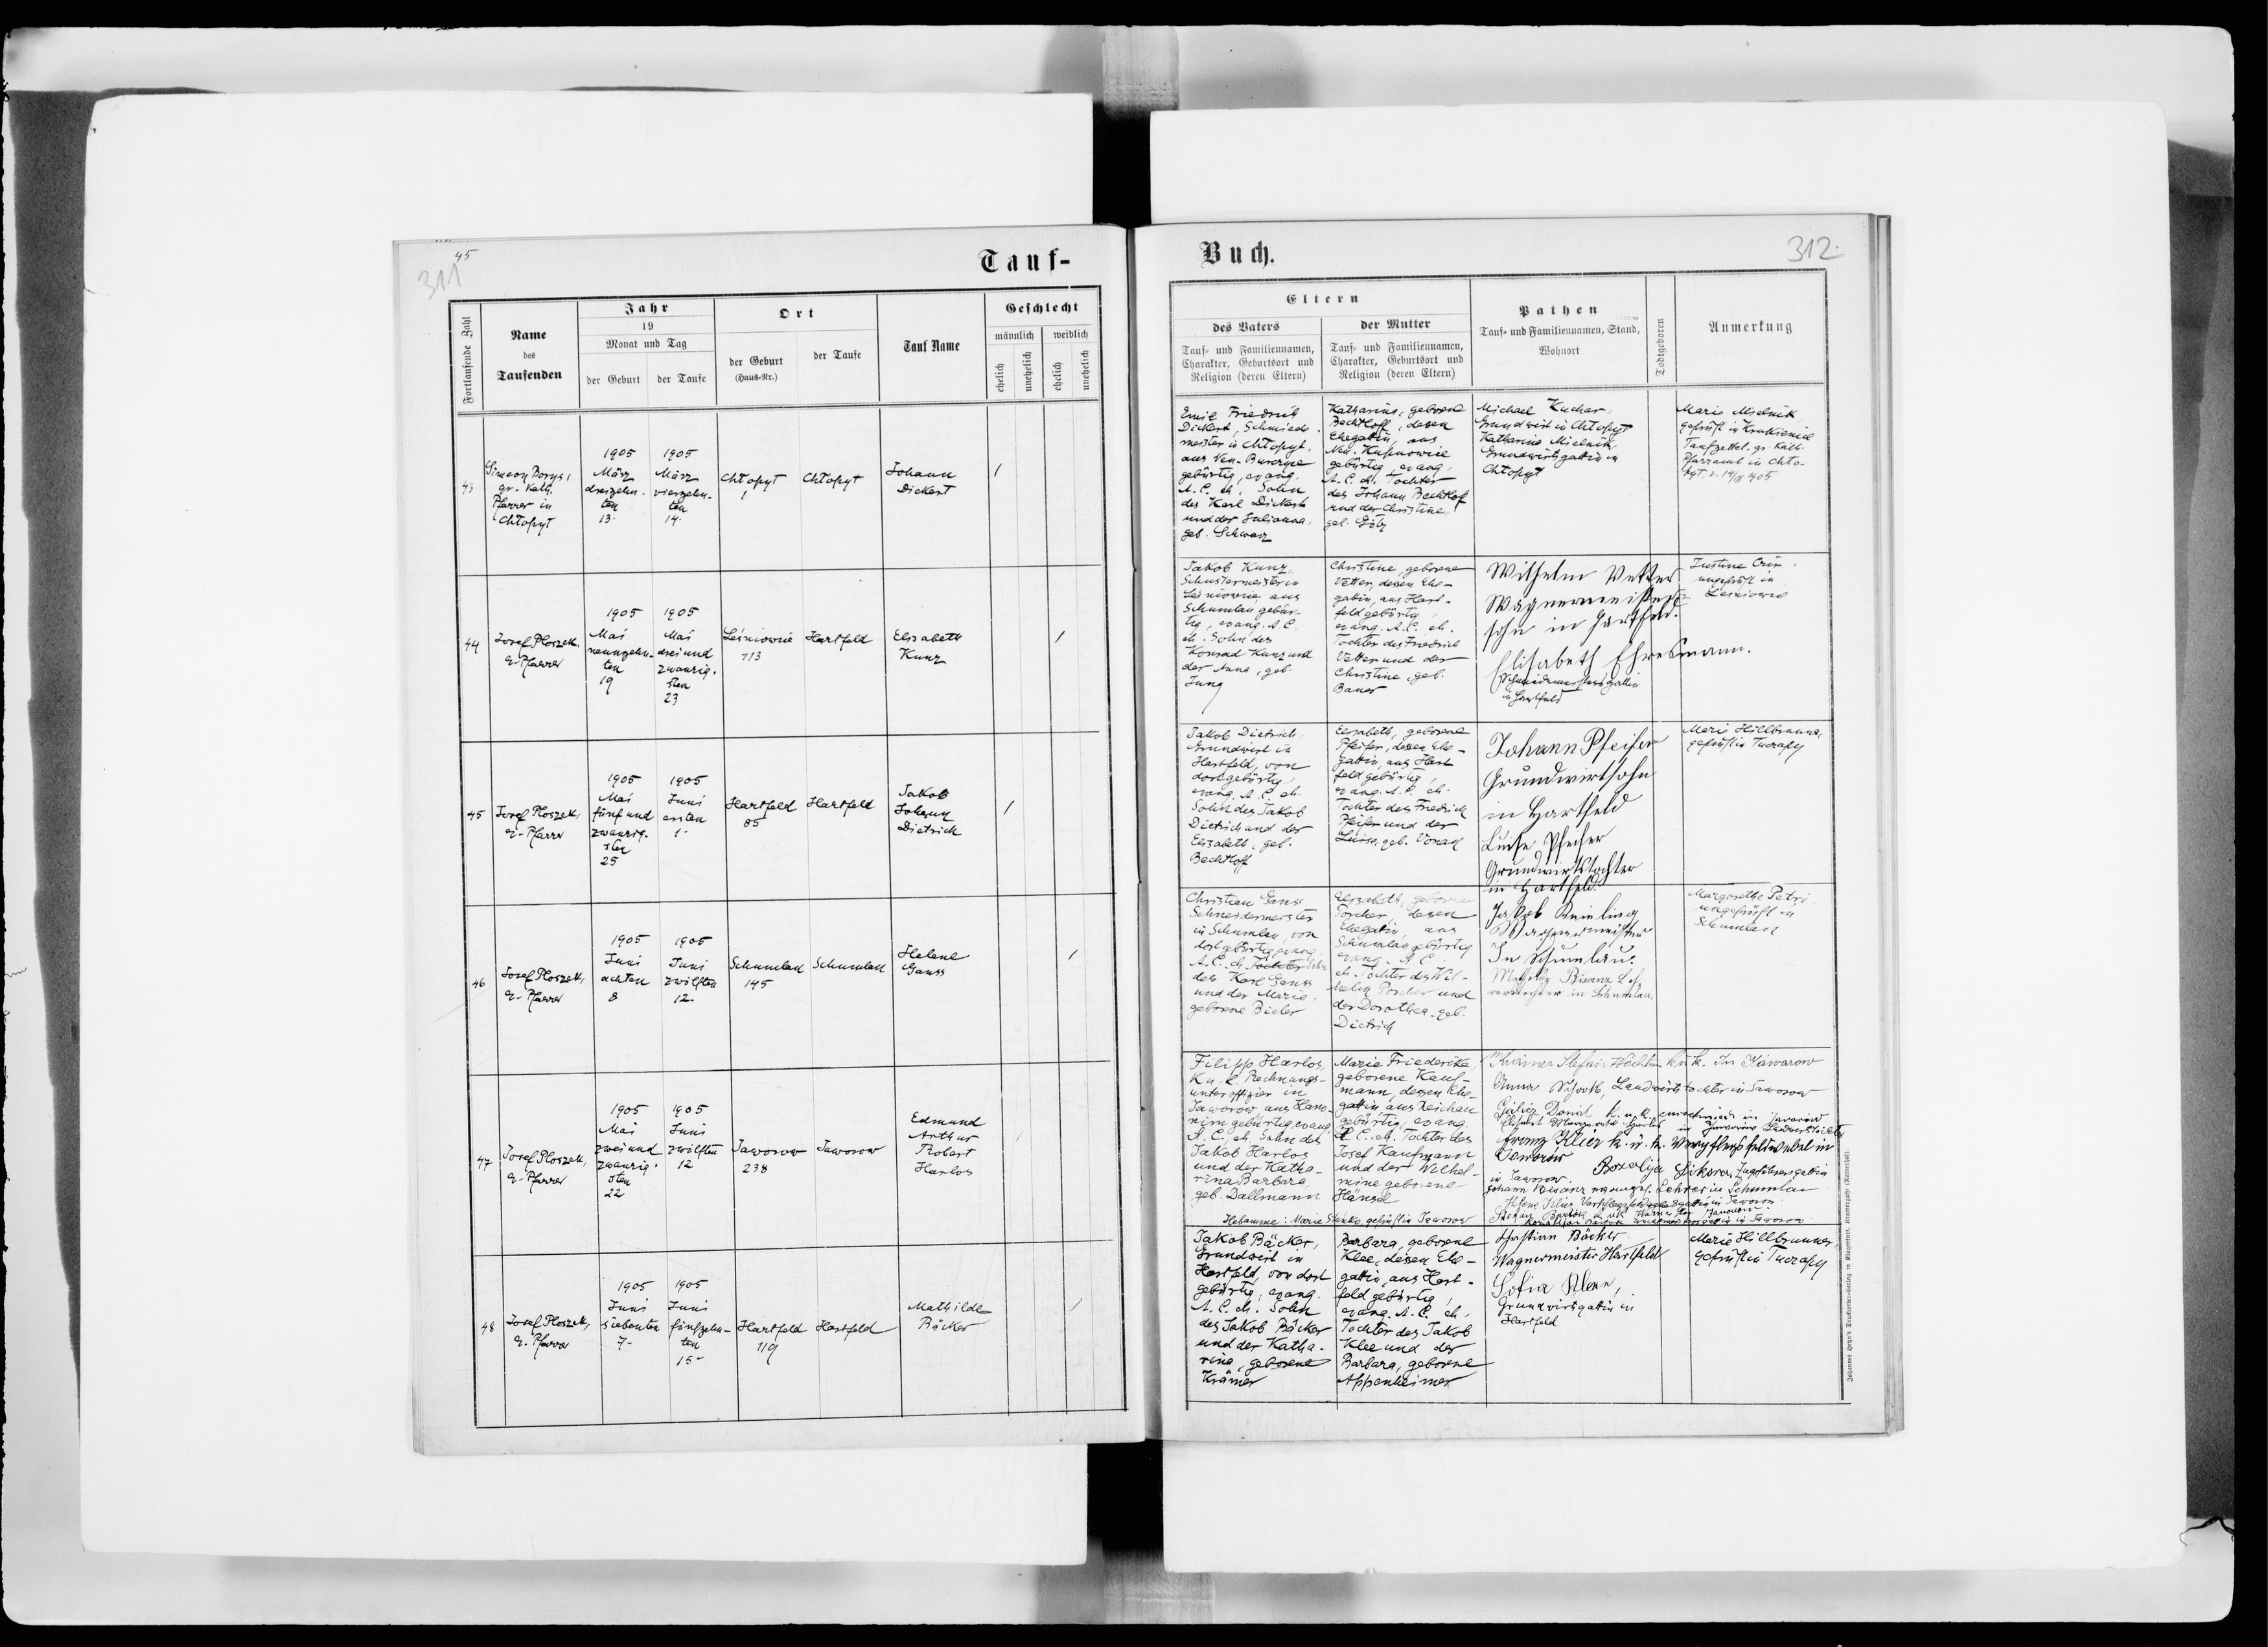 45
311
Tauf-
Fortlaufende Zahl
Name
des
Taufenden
Jahr
19
Monat und Tag
der Geburt
der Taufe
Ort
der Geburt
(Haus-Nr.)
der Taufe
Tauf Name
Geschlecht
männlich
weiblich
ehelich
unehelich
ehelich
unehelich
43
Simeon Borys,
gr. kath.
Pfarrer in
Chłopyt
1905
März
dreizehn-
ten
13.
1905
März
vierzehn-
ten
14.
Chłopyt
1
Chłopyt
Johann
Dickert
/
44
Josef Ploszek,
e. Pfarrer
1905
Mai
neunzehn-
ten
19
1905
Mai
dreiund
zwanzig-
sten
23
Leśniowie
113
Hartfeld
Elisabeth
Kunz
/
45
Josef Ploszek,
e. Pfarrer
1905
Mai
fünfund
zwanzig-
sten
25
1905
Juni
ersten
1.
Hartfeld
85
Hartfeld
Jakob
Johann
Dietrich
/
46
Josef Ploszek,
e. Pfarrer
1905
Juni
achten
8
1905
Juni
zwölften
12.
Schumlau
145
Schumlau
Helene
Gauss
/
47
Josef Ploszek,
e. Pfarrer
1905
Mai
zweiund
zwanzig-
sten
22
1905
Juni
zwölften
12
Jaworow
238
Jaworow
Edmund
Arthur
Robert
Harlos
/
48
Josef Ploszek,
e. Pfarrer
1905
Juni
siebenten
7.
1905
Juni
fünfzehn-
ten
15.
Hartfeld
119
Hartfeld
Mathilde
Bäcker
/
Buch.
312.
Eltern
des Vaters
Tauf- und Familiennamen,
Charakter, Geburtsort und
Religion (deren Eltern)
der Mutter
Tauf- und Familiennamen,
Charakter, Geburtsort und
Religion (deren Eltern)
Pathen
Tauf- und Familiennamen, Stand,
Wohnort
Todtgeboren
Anmerkung
Emil Friedrich
Dickert, Schmiede-
meister in Chłopyt,
aus Neu-
gebürtig, evang.
A. C. eh. Sohn
des Karl Dickert
und der Julianna,
geb. Schwarz
Katharina, geborene
Bechtloff, dessen
Ehegattin, aus
Neu-Kupnowice
gebürtig, evang.
A. C. eh. Tochter
des Johann Bechtlof
und der Christine
geb. Götz
Michael Kuchar,
Grundwirt in Chłopyt
Katharina Mielnik,
Grundwirtsgattin in
Chłopyt
Marie Mielnik
geprüft in Krukienice
Taufzettel gr. kath.
Pfarramt in Chło-
pyt v. 14/III 1905
Jakob Kunz,
Schustermeister in
Leśniowie aus
Schumlau gebür-
tig, evang. A. C.
eh. Sohn des
Konrad Kunz und
der Anna, geb.
Jung
Christine, geborene
Vetter, dessen Ehe-
gattin, aus Hart-
feld gebürtig,
evang. A. C. eh.
Tochter des Friedrich
Vetter und der
Christine, geb.
Bauer
Wilhelm Vetter
Wagnermeisters-
sohn in Hartfeld.
Elisabeth Ehresmann.
Schmiedemeistersgattin
in Hartfeld
Justine
ungeprüft in
Leśniowie
Jakob Dietrich,
Grundwirt in
Hartfeld, von
dort gebürtig,
evang. A. C. eh.
Sohn des Jakob
Dietrich und der
Elisabeth, geb.
Bechtloff
Elisabeth, geborene
Pfeifer, dessen Ehe-
gattin, aus Hart-
feld gebürtig,
evang. A. C. eh.
Tochter des Friedrich
Pfeifer und der
Luise, geb. Vonad
Johann Pfeifer
Grundwirtsohn
in Hartfeld
Luise Pfeifer
Grundwirtstochter
in Hartfeld.
Marie Hillbrunner,
geprüft in Tuczapy
Christian Gauss
Schneidermeister
in Schumlau, von
dort gebürtig, evang.
A. C. eh. Tochter Sohn
des Karl Gauss
und der Marie,
geborene Bieber
Elisabeth, geborene
Porcher, dessen
Ehegattin, aus
Schumlau gebürtig
evang. A. C.
eh. Tochter des Wil-
helm Porcher und
der Dorothea, geb.
Dietrich
Jakob Reinling
Wagnermeister
In Schumlau.
Mathilde Bisanz
in Schumlau.
Margarethe Petri,
ungeprüft in
Schumlau
Filipp Harlos,
K. u. k. Rechnungs-
unteroffizier in
Jaworow, aus Hano-
nim gebürtig, evang.
A. C., eh. Sohn des
Jakob Harlos
und der Katha-
rina Barbara,
geb. Dallmann
Marie Friederike,
geborene Kauf-
mann, dessen Ehe-
gattin, aus Reichau
gebürtig, evang.
A. C. eh. Tochter des
Josef Kaufmann
und der Wilhel-
mine geborene
Hänsel
Hebamme: Marie Stanko, geprüft in Jaworow
Anna Schoob, Landwirtstochter in Jaworow
Franz Klier k. u. k. Verpflegsfeldwebel in
Jaworow
Rozalja Sikora, Zugsführersgattin
in Jaworow.
Johann Bisanz evangel. Lehrer in Schumlau
Jakob Bäcker,
Grundwirt in
Hartfeld, von dort
gebürtig, evang.
A. C. eh. Sohn
des Jakob Bäcker
und der Katha-
rina, geborene
Krämer
Barbara, geborene
Klee, dessen Ehe-
gattin, aus Hart-
feld gebürtig,
evang. A. C. eh.
Tochter des Jakob
Klee und der
Barbara, geborene
Appenheimer
Bächler
Wagnermeister Hartfeld
Sofia Klee,
Grundwirtsgattin in
Hartfeld
Marie Hillbrunner,
geprüft in Tuczapy